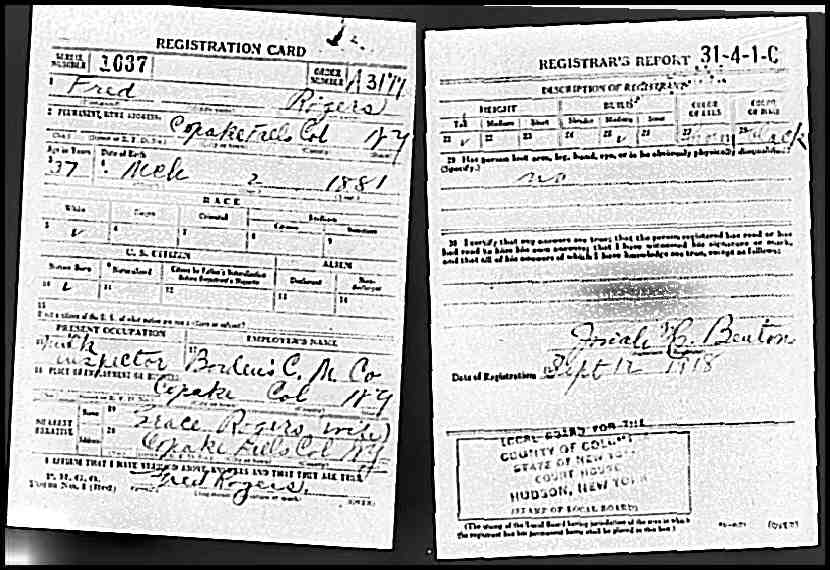 REGISTRATION CARD
SERIAL NUMBER 1037 ORDER NUMBER A3177
1 Fred Rogers
2 PERMANENT HOME ADDRESS:
Copake Falls Col NY
Age in Years Date of Birth
37 Mch 2 1881
RACE
White Oriental Indian
Citizen Noncitizen
5 v 6 7 8 9
U. S. CITIZEN ALIEN
Native Born Naturalized Citizen by Father's Naturalization Before Registrant's Majority Declarant Non-declarant
10 v 11 12 13 14
15
If not a citizen of the U. S. of what nation are you a citizen or subject?
PRESENT OCCUPATION EMPLOYER'S NAME
Inspector Borden's C. M. Co
18 PLACE OF EMPLOYMENT OR BUSINESS
Copake Col NY
NEAREST RELATIVE Name 19 Grace Rogers (wife)
Address 20 Copake Falls Col NY
I AFFIRM THAT I HAVE VERIFIED ABOVE ANSWERS AND THAT THEY ARE TRUE
P. M. G. O.
Form No. 1 (Red) Fred Rogers.
(OVER)
REGISTRAR'S REPORT 31-4-1-C
DESCRIPTION OF REGISTRANT
HEIGHT BUILD COLOR OF EYES COLOR OF HAIR
Tall Medium Short Slender Medium Stout
21 v 22 23 24 25 v 26 27 28
29 Has person lost arm, leg, hand, eye, or is he obviously physically disqualified?
(Specify.)
no
30 I certify that my answers are true; that the person registered has read or has
had read to him his own answers; that I have witnessed his signature or mark,
and that all of his answers of which I have knowledge are true, except as follows:
Josiah H. Benton
Date of Registration Sept 12 1918
LOCAL BOARD FOR THE
COUNTY OF COLUM
STATE OF NEW YORK
COURT HOUSE
HUDSON, NEW YORK
(STAMP OF LOCAL BOARD)
(The stamp of the Local Board having jurisdiction of the area in which
the registrant has his permanent home shall be placed in this box.)
(OVER)